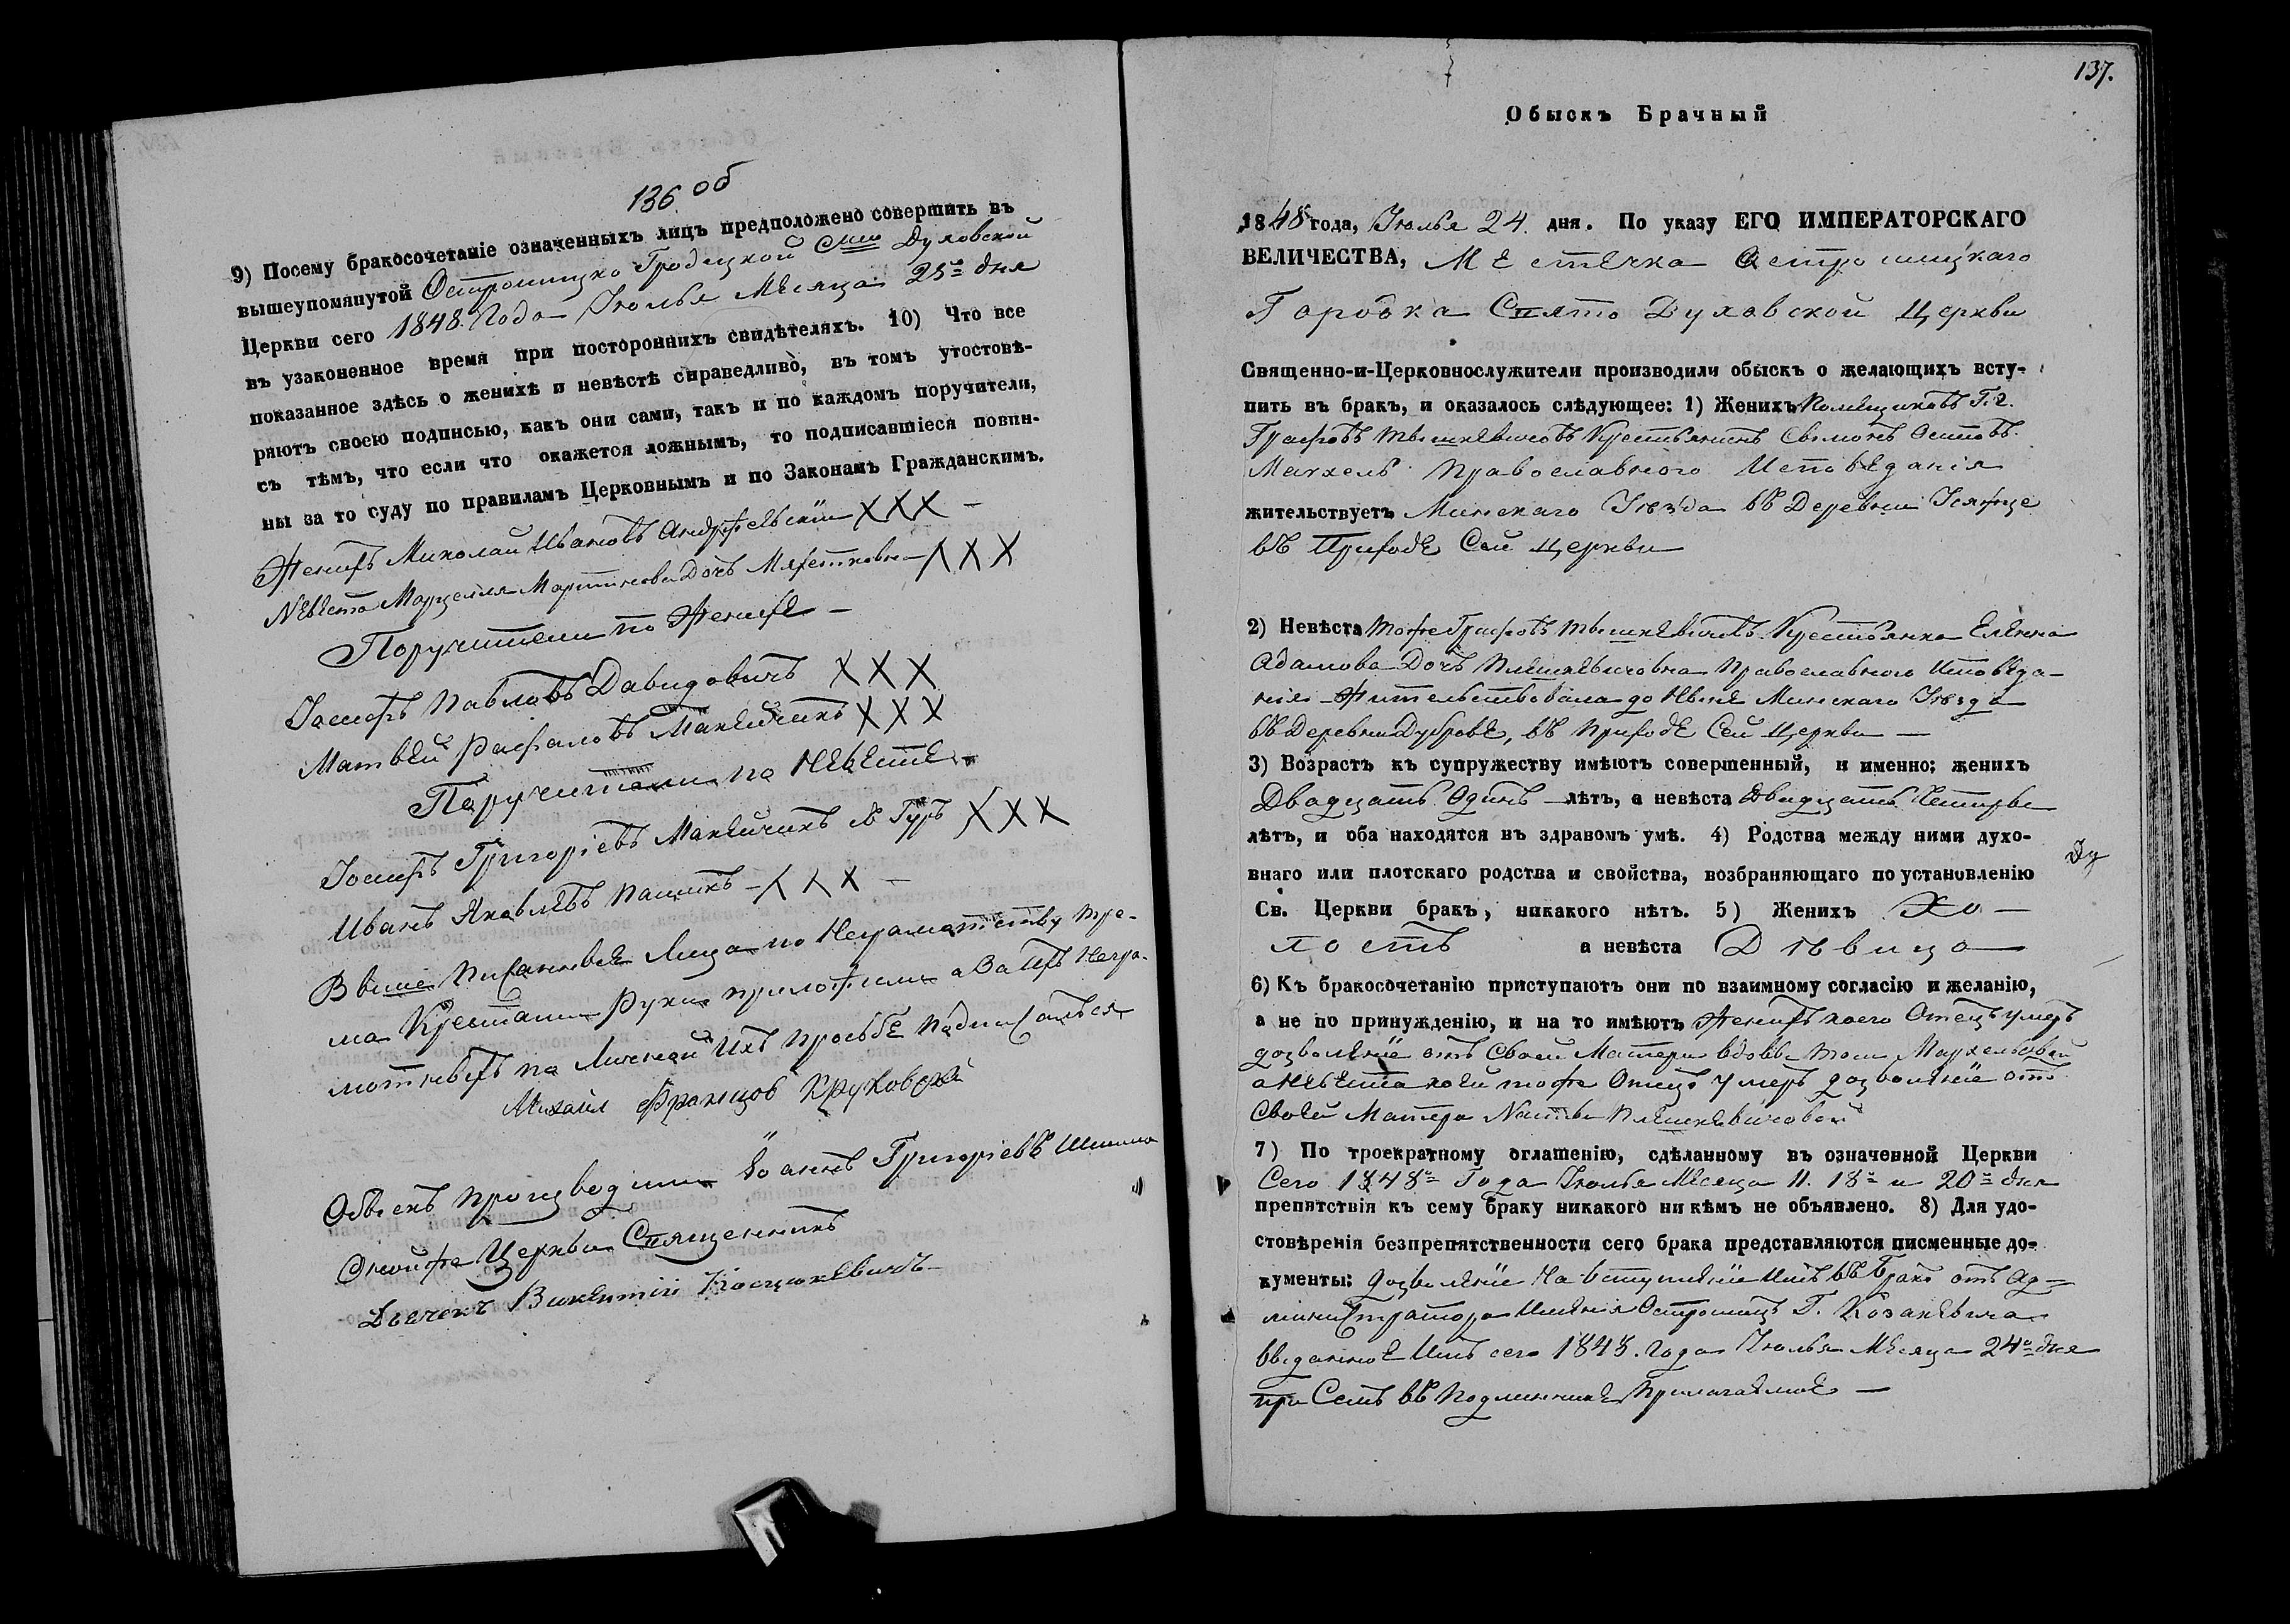 136 об
9) Посему бракосочетаніе означенныхъ лицъ предположено совершить въ
вышеупомянутой Острошицко Городецкой Свято Духовской
Церкви сего 1848. Года Іюлья Мѣсяца 25го дня
въ узаконенное время при постороннихъ свидѣтеляхъ. 10) Что все
показанное здѣсь о женихѣ и невѣстѣ справедливо, въ томъ утостовѣ-
ряютъ своею подписью, какъ они сами, такъ и по каждомъ поручители,
съ тѣмъ, что если что окажется ложнымъ, то подписавшіеся повин-
ны за то суду по правиламъ Церковнымъ и по Законамъ Гражданскимъ.
Женихъ Миколай Ивановъ XXX —
Невѣста Марцелля Мартинова Дочь XXX
Поручители по Женихѣ —
Іосифъ Павловъ Давидовичъ XXX
Матвѣй Рафаловъ XXX
Поручители по Невѣстѣ —
Іосифъ Григоріевъ Гуръ XXX
Иванъ Яковлевъ Пашикъ — XXX —
Выше писанные Лица по Неграматству тре-
ма Крестами Руки приложили а За ихъ Негра-
мотныхъ по Личной Ихъ Просьбе подписалься
Михаил Францов Круковский
Обыскъ производили Іоаннъ Григоріевъ
Онойже Церкви Священникъ
Дьячекъ Викентій Косцюкевичъ
137.
Обыскъ Брачный
1848 года, Іюлья 24. дня. По указу ЕГО ИМПЕРАТОРСКАГО
ВЕЛИЧЕСТВА, Местечка Острошицкаго
Городка Свято Духовской Церкви
Священно-и-Церковнослужители производили обыскъ о желающихъ всту-
пить въ бракъ, и оказалось слѣдующее: 1) Женихъ Помещиковъ Г.г.
Графовъ Тышкевичовъ Крестьянинъ Сымонъ
Махель Православного Исповеданія
жительствуетъ Минскаго Уезда въ Деревни
въ Приходе Сей Церкви
2) Невѣста тоже Графовъ Тышкевичовъ Крестьянка Еленна
Адамова Дочь Плешкевичовна Православного Исповеда-
нія Жительствовала до Ныне Минскаго Уезда
въ Деревни Дубровѣ, въ Приходе Сей Церкви —
3) Возрастъ къ супружеству имѣютъ совершенный, и именно: женихъ
Двадцать Одинъ — лѣтъ, а невѣста Двадцать Четыры
лѣтъ, и оба находятся въ здравомъ умѣ. 4) Родства между ними духо-
внаго или плотскаго родства и свойства, возбраняющаго по установленію
Св. Церкви бракъ, никакого нѣтъ. 5) Женихъ Хо —
лостъ а невѣста Дѣвица
6) Къ бракосочетанію приступаютъ они по взаимному согласію и желанію,
а не по принужденію, и на то имѣютъ Женихъ коего Отецъ умеръ
дозволеніе отъ Своей Матери вдовы
а Невеста коей тоже Отецъ умеръ дозволеніе отъ
Своей Матери Насты Плешкевичовой
7) По троекратному оглашенію, сдѣланному въ означенной Церкви
Сего 1848го Года Іюлья Мѣсяца 11. 18го и 20го дня
препятствія къ сему браку никакого ни кѣмъ не объявлено. 8) Для удо-
стовѣренія безпрепятственности сего брака представляются писменные до-
кументы: дозволеніе На вступленіе Имъ въ бракъ отъ Ад-
министратора Именія Острошицъ Г. Козакевича
выданное Имъ сего 1848. Года Іюлья Мѣсяца 24го дня
при Семъ въ Подлиннике Прилагаемое —